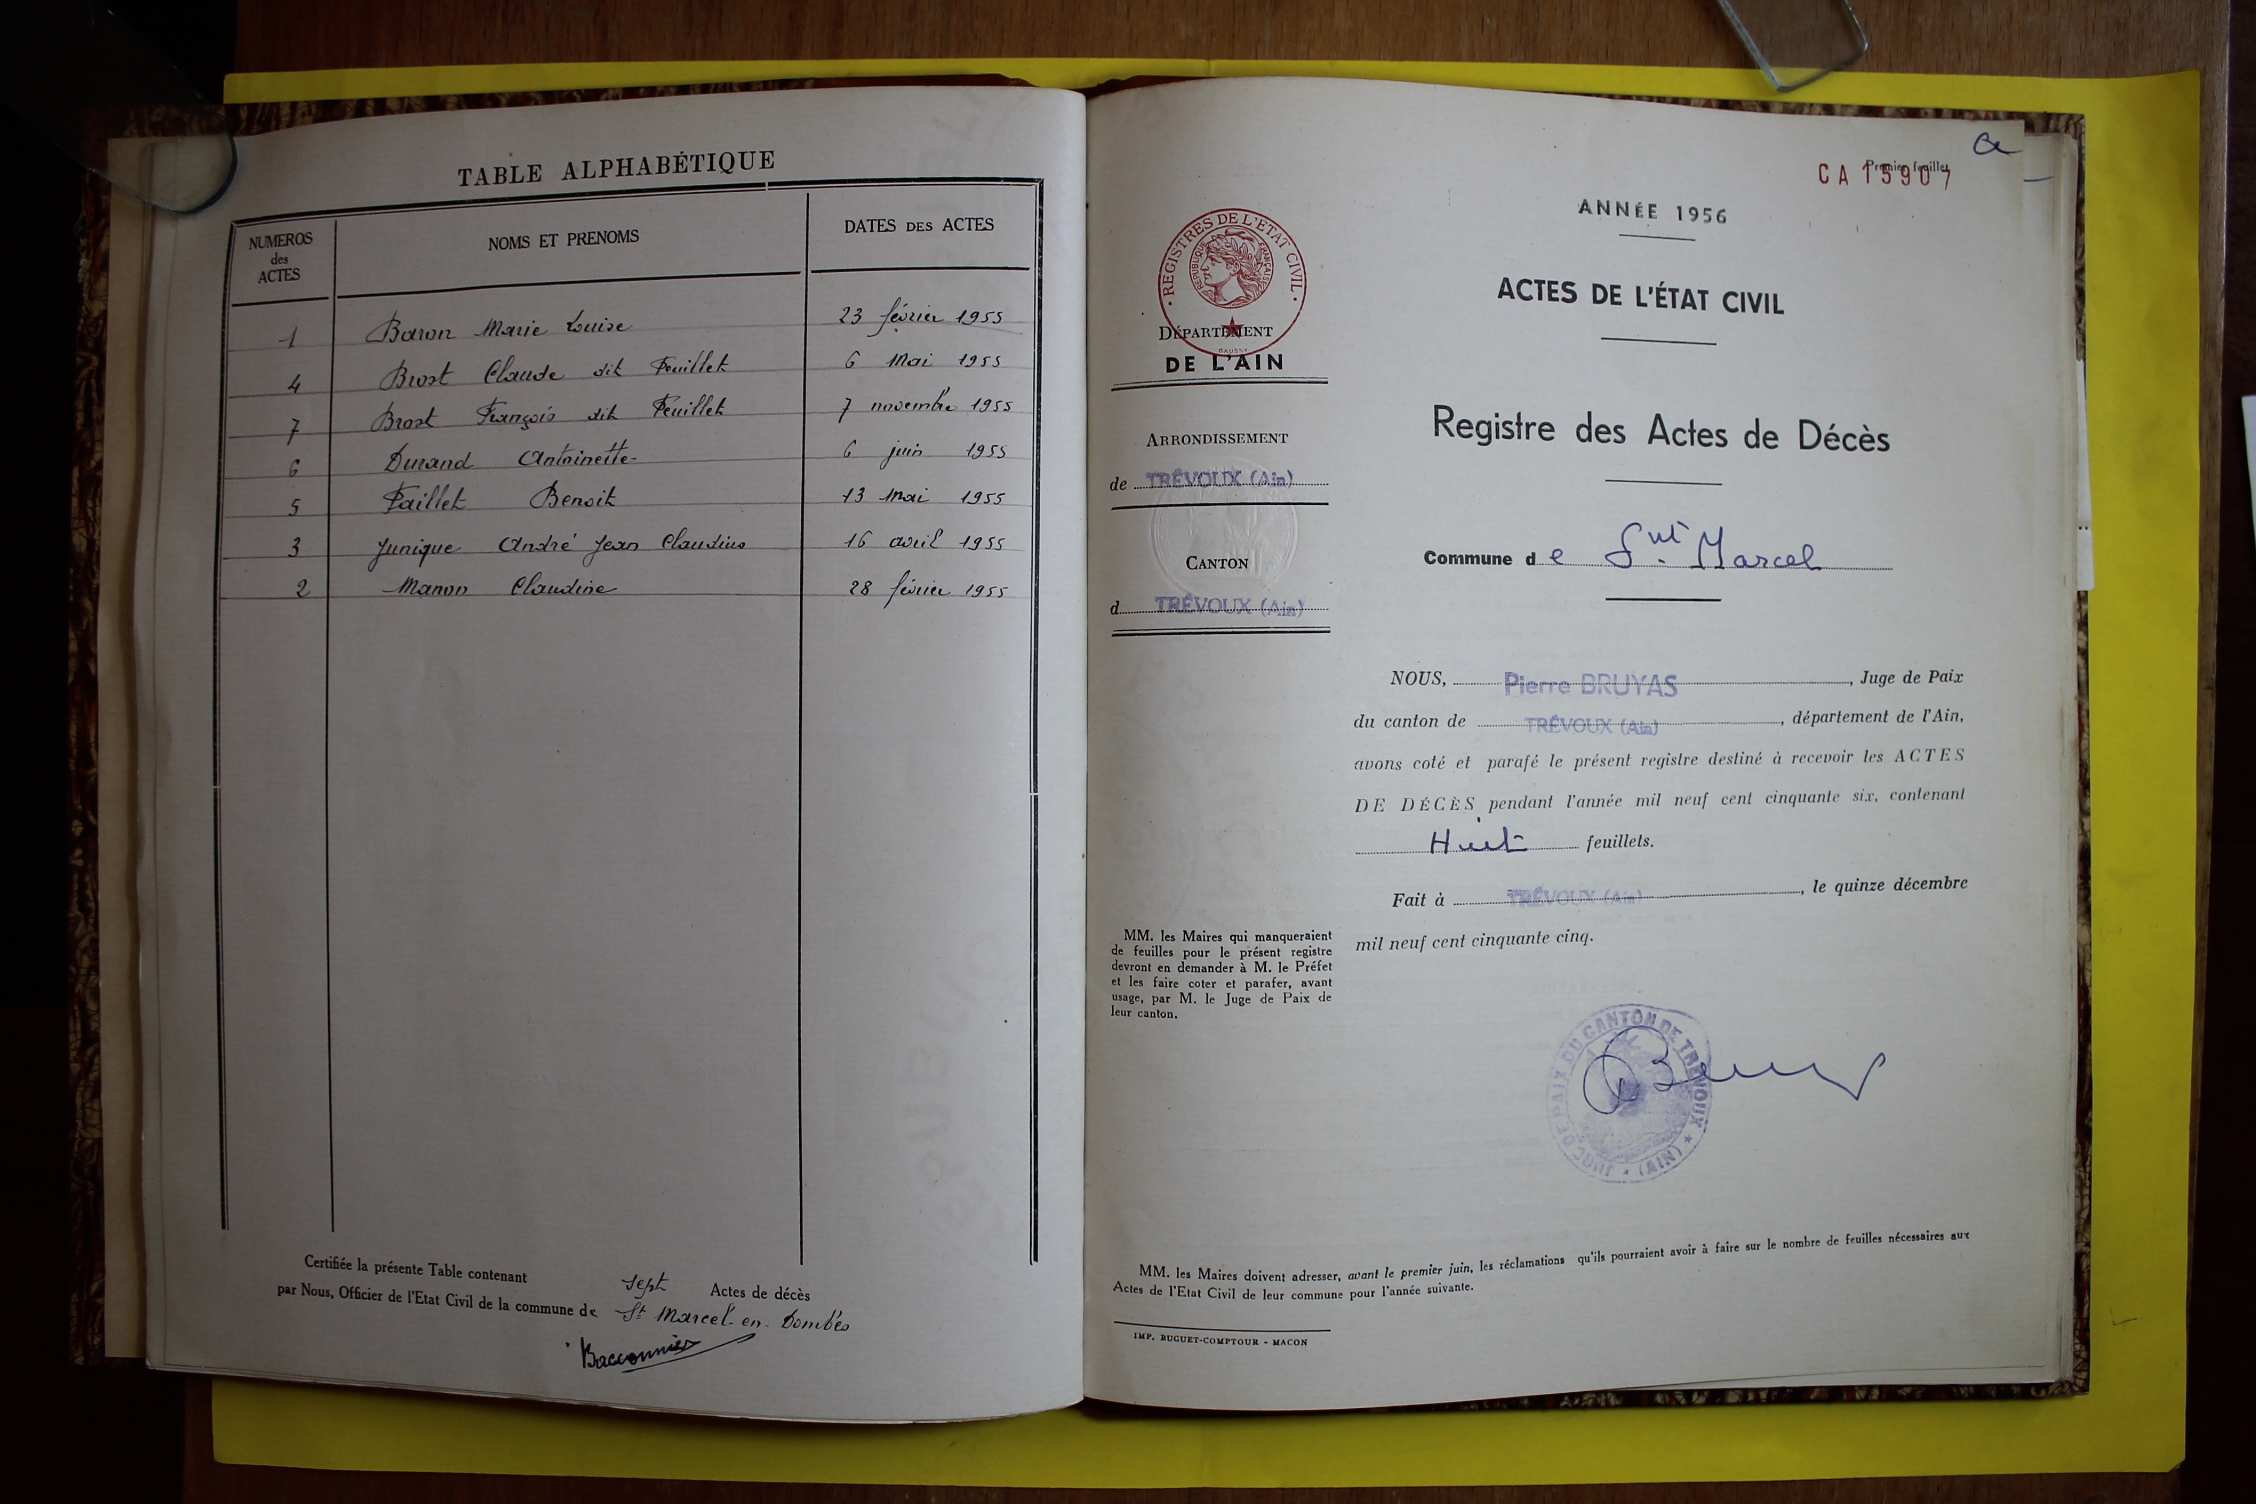 TABLE ALPHABÉTIQUE
NUMEROS des ACTES
NOMS ET PRENOMS
DATES DES ACTES
1 Baron Marie Louise 23 février 1955
4 Brost Claude dit Feuillet 6 Mai 1955
7 Brost François dit Feuillet 7 novembre 1955
6 Durand Antoinette 6 juin 1955
5 Paillet Benoit 13 Mai 1955
3 Junique André Jean Claudius 16 avril 1955
2 Manon Claudine 28 février 1955
Certifiée la présente Table contenant sept Actes de décès
par Nous, Officier de l'Etat Civil de la commune de St Marcel-en-Dombes
Bacconnier
Premier feuillet
CA 15907
ANNÉE 1956
REGISTRES DE L'ETAT CIVIL
REPUBLIQUE FRANÇAISE
DÉPARTEMENT
DE L'AIN
ACTES DE L'ÉTAT CIVIL
Registre des Actes de Décès
ARRONDISSEMENT
de TRÉVOUX (Ain)
CANTON
d TRÉVOUX (Ain)
Commune de Snt. Marcel
NOUS, Pierre BRUYAS, Juge de Paix
du canton de TRÉVOUX (Ain), département de l'Ain,
avons coté et parafé le présent registre destiné à recevoir les ACTES
DE DÉCÈS pendant l'année mil neuf cent cinquante six, contenant
Huit feuillets.
Fait à TRÉVOUX (Ain), le quinze décembre
mil neuf cent cinquante cinq.
MM. les Maires qui manqueraient
de feuilles pour le présent registre
devront en demander à M. le Préfet
et les faire coter et parafer, avant
usage, par M. le Juge de Paix de
leur canton.
JUGE DE PAIX DU CANTON DE TREVOUX ★ (AIN)
MM. les Maires doivent adresser, avant le premier juin, les réclamations qu'ils pourraient avoir à faire sur le nombre de feuilles nécessaires aux
Actes de l'Etat Civil de leur commune pour l'année suivante.
IMP. BUGUET-COMPTOUR - MACON